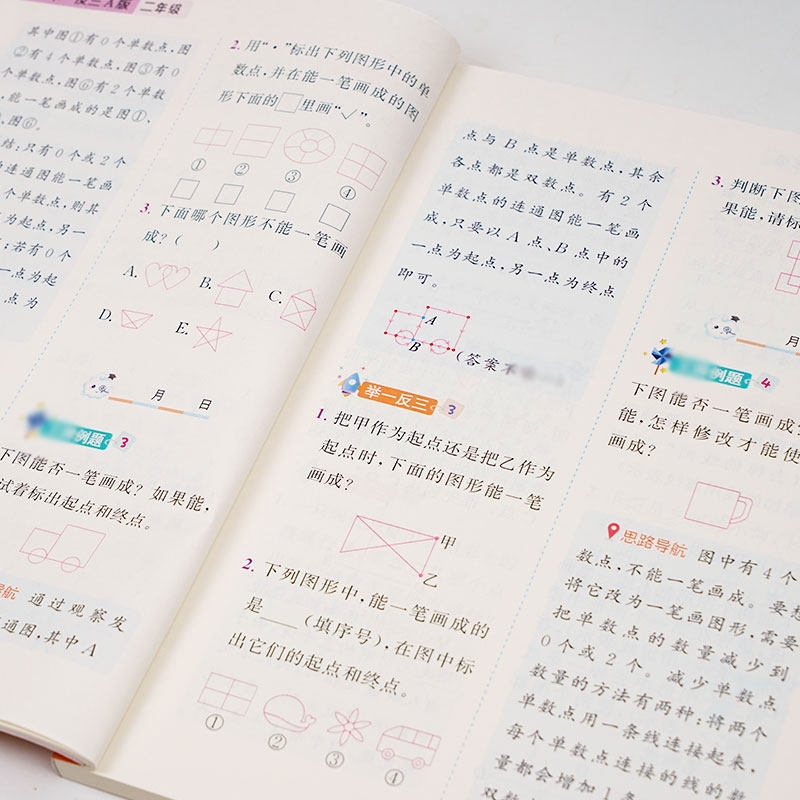 反三A版 二年级
其中图①有0个单数点,图
②有4个单数点,图③有0
个单数点,图⑥有2个单数
能一笔画成的是图①、
图⑥。
结:只有0个或2个
的连通图能一笔画
个单数点,则其
为起点,另一
;若有0个
一点为起
点为
2. 用“·”标出下列图形中的单
数点,并在能一笔画成的图
形下面的□里画“√”。
① ② ③ ④
3. 下面哪个图形不能一笔画
成?( )
A. B. C.
D. E.
月 日
例题 3
下图能否一笔画成?如果能,
试着标出起点和终点。
导航 通过观察发
通图,其中A
点与B点是单数点,其余
各点都是双数点。有2个
单数点的连通图能一笔画
成,只要以A点、B点中的
一点为起点,另一点为终点
即可。
A
B
(答案不
举一反三 3
1. 把甲作为起点还是把乙作为
起点时,下面的图形能一笔
画成?
甲
乙
2. 下列图形中,能一笔画成的
是____(填序号),在图中标
出它们的起点和终点。
① ② ③ ④
3. 判断下图
果能,请标
月
例题 4
下图能否一笔画成?
能,怎样修改才能使
画成?
思路导航 图中有4个
数点,不能一笔画成。要想
将它改为一笔画图形,需要
把单数点的数量减少到
0个或2个。减少单数点
数量的方法有两种:将两个
单数点用一条线连接起来,
每个单数点连接的线的数
量都会增加1条
双数